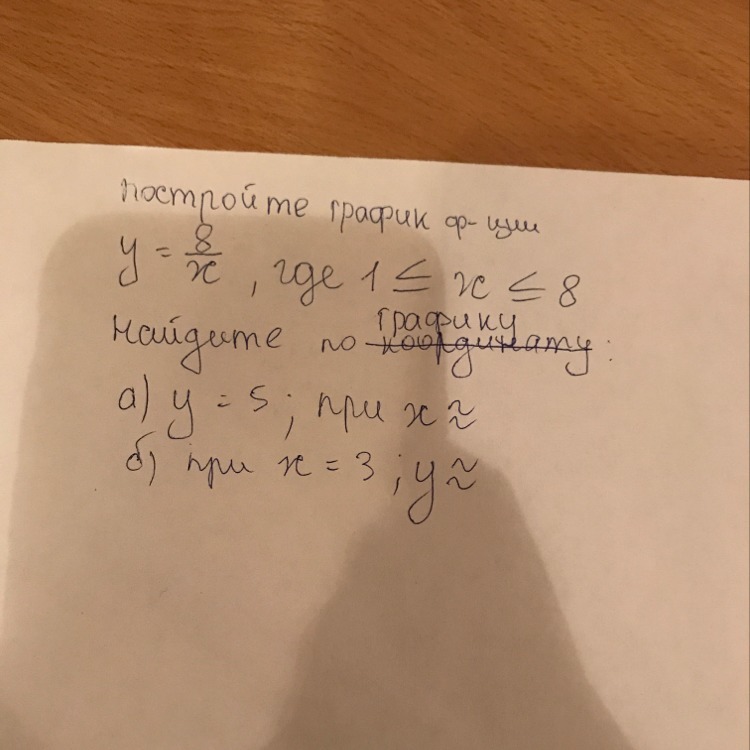 постройте график ф-ции
y = 8/x , где 1 ≤ x ≤ 8
найдите по графику координату :
а) y = 5 ; при x ≈
б) при x = 3 ; y ≈